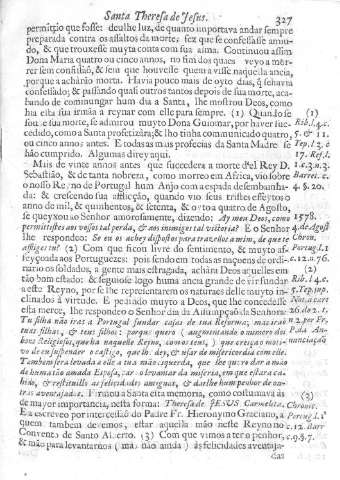 Santa Theresa de Jesus. 327
permittio que fosse: deulhe luz, de quanto importava andar sempre
preparada contra os assaltos da morte: fez que se confessasse amiu-
do, & que trouxesse muyta conta com sua alma. Continuou assim
Dona Maria quatro ou cinco annos, no fim dos quaes veyo a mor-
rer sem confissaõ, & sem que houvesse quem a visse naquella ancia,
porque a achàraõ morta. Havia pouco mais de oyto dias, q̃ se havia
confessado; & passando quasi outros tantos depois de sua morte, aca-
bando de commungar hum dia a Santa, lhe mostrou Deos, como
hia esta sua irmãa a reynar com elle para sempre. (1) Quando se
soube sua morte, se admirou muyto Dona Guiomar, por haver suc-
cedido, como a Santa profetizàra; & lho tinha communicado quatro,
ou cinco annos antes. E todas as mais profecias da Santa Madre se
haõ cumprido. Algumas direy aqui.
Mais de vinte annos antes que succedera a morte d'el Rey D.
Sebastiaõ, & de tanta nobreza, como morreo em Africa, vio sobre
o nosso Reyno de Portugal hum Anjo com a espada desembainha-
da: & crescendo sua afflicçaõ, quando vio seus tristes effeytos o
anno de mil, & quinhentos, & setenta, & oyto a quatro de Agosto,
se queyxou ao Senhor amorosamente, dizendo: Ay meu Deos, como
permittistes aos vossos tal perda, & aos inimigos tal vitoria? E o Senhor
lhe respondeo: Se eu os achey dispostos para trazelos a mim, de que te
affliges tu? (2) Com que ficou livre do sentimento, & muyto af-
feyçoada aos Portuguezes: pois sendo em todas as naçoens de ordi-
nario os soldados, a gente mais estragada, achàra Deos aquelles em
taõ bom estado: & seguiose logo huma ancia grande de vir fundar
a neste Rey, por se lhe representarem os naturaes delle muyto in-
clinados à virtude. E pedindo muyto a Deos, que lhe concedesse
esta merce, lhe respondeo o Senhor dia da Assumpçaõ da Senhora:
Tu filha naõ iràs a Portugal fundar casas de tua Reforma; mas iraõ
tuas filhas, & teus filhos: porque quero augmentando o numero dos
bons Religiosos, que ha naquelle Reyno,
vou de suspender o castigo, que lhe dey, & usar de misericordia com elle.
Tambem serà levada a elle a tua maõ esquerda,
& restituillo as felicidades antiguas, & darlhe hum penhor de ou-
tras aventajadas. Firmou a Santa esta memoria, como costumava as
de mayor importancia, nesta fórma: Theresa de JESUS Carmelita.
E a escreveo por intercessaõ do Padre Fr. Hieronymo Graciano, a
quem tambem devemos, estar aquella maõ neste Reyno no
Convento de Santo Alberto. (3) Com que vimos a ter o penhor,
& maõ para levantarnos (mas naõ ainda) às felicidades aventaja-
das
(1)
Rib. l. 4. c.
5. & 11.
Yep. l. 2. c.
17. Ref. l.
1. c. 2. n. 3.
Barret. c.
4. §. 20.
1578.
4. de Agost.
Chron.
Portug. l. 1
c. 12. n. 76.
(2)
Rib. l. 4. c.
5. Yep. imp.
26. do 2. t.
n. 2. por Fr.
nunciaçaõ
(3)
Chronic.
Portug. l. 1
c. 12. Barr
c. 9. §. 7.